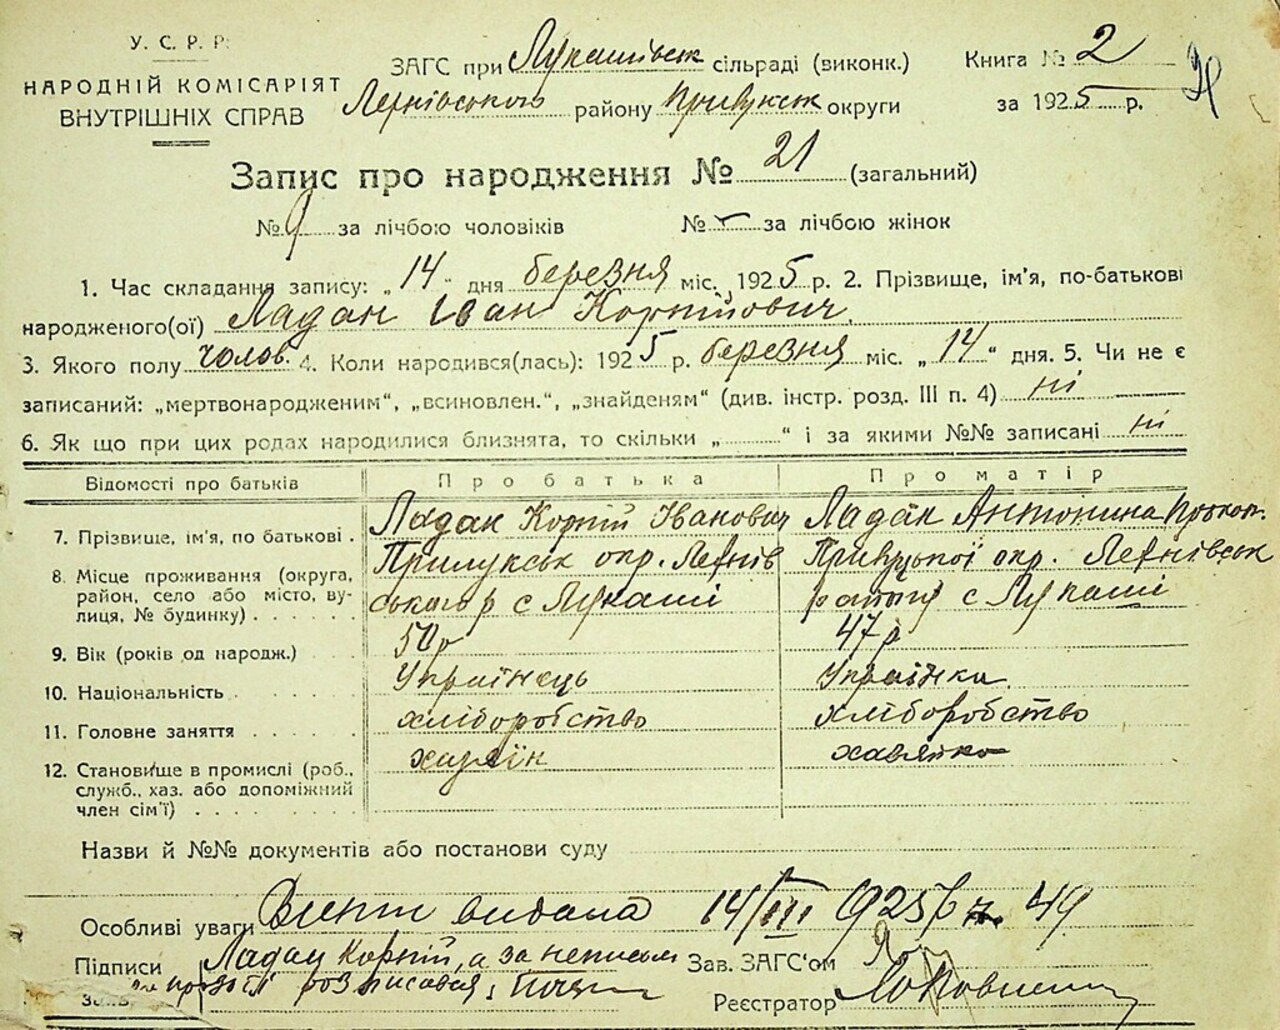 У. С. Р. Р.
НАРОДНІЙ КОМІСАРІЯТ
ВНУТРІШНІХ СПРАВ
ЗАГС при Лукашівськ сільраді (виконк.)
району Прилукськ округи
Книга № 2
за 1925 р.
Запис про народження № 21 (загальний)
№ 9 за лічбою чоловіків № за лічбою жінок
1. Час складання запису: „14" дня березня міс. 1925 р. 2. Прізвище, ім'я, по-батькові
народженого(ої) Ладан Іван Корнійович
3. Якого полу чолов. 4. Коли народився(лась): 1925 р. березня міс. „14" дня. 5. Чи не є
записаний: „мертвонародженим", „всиновлен.", „знайденям" (див. інстр. розд. III п. 4) ні
6. Як що при цих родах народилися близнята, то скільки „ " і за якими №№ записані ні
Відомості про батьків Про батька Про матір
7. Прізвище, ім'я, по батькові . Ладан Корній Іванович Ладан Антонина Прокоп.
8. Місце проживання (округа, район, село або місто, вулиця, № будинку) . . . . . .
Прилукськ окр.
с Лукаші
Прилуцької окр.
району с Лукаші
9. Вік (років од народж.) 50 р 47 р
10. Національність Українець Українка
11. Головне заняття хліборобство хліборобство
12. Становище в промислі (роб., служб., хаз. або допоміжний член сім'ї)
Назви й №№ документів або постанови суду
Особливі уваги видана 14/III 1925 р № 49
Підписи Ладан Корній, а за неписьм
розписався
Заяв.
Зав. ЗАГС'ом
Реєстратор